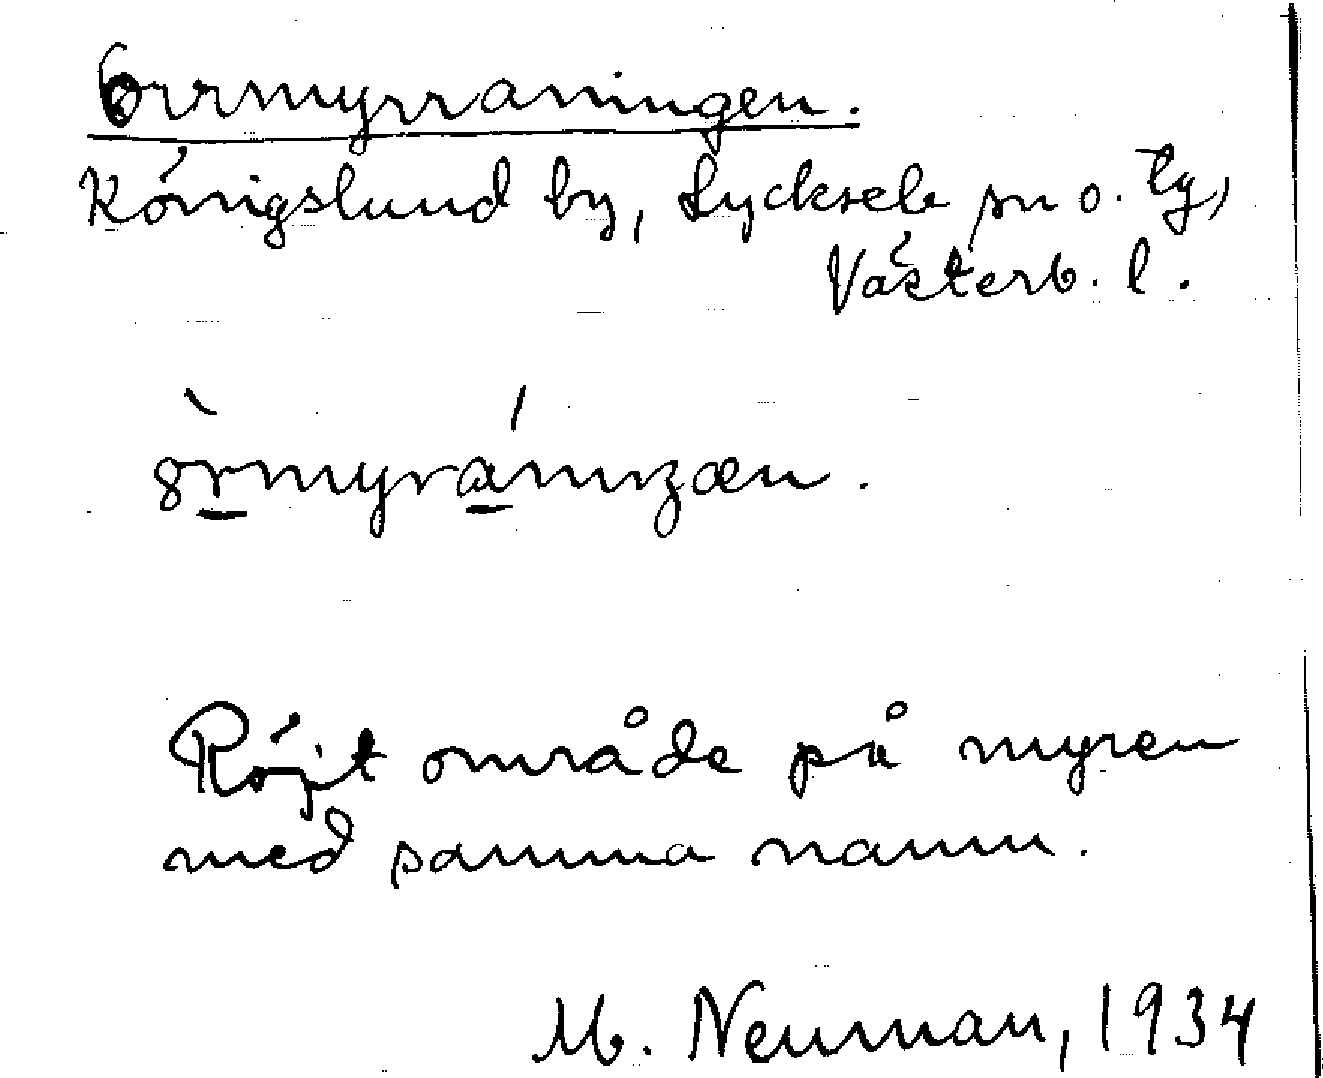 Orrmyrraningen.
Königslund by, Lycksele sn o. tg,
Västerb. l.
Röjt område på myren
med samma namn.
M. Neuman, 1934